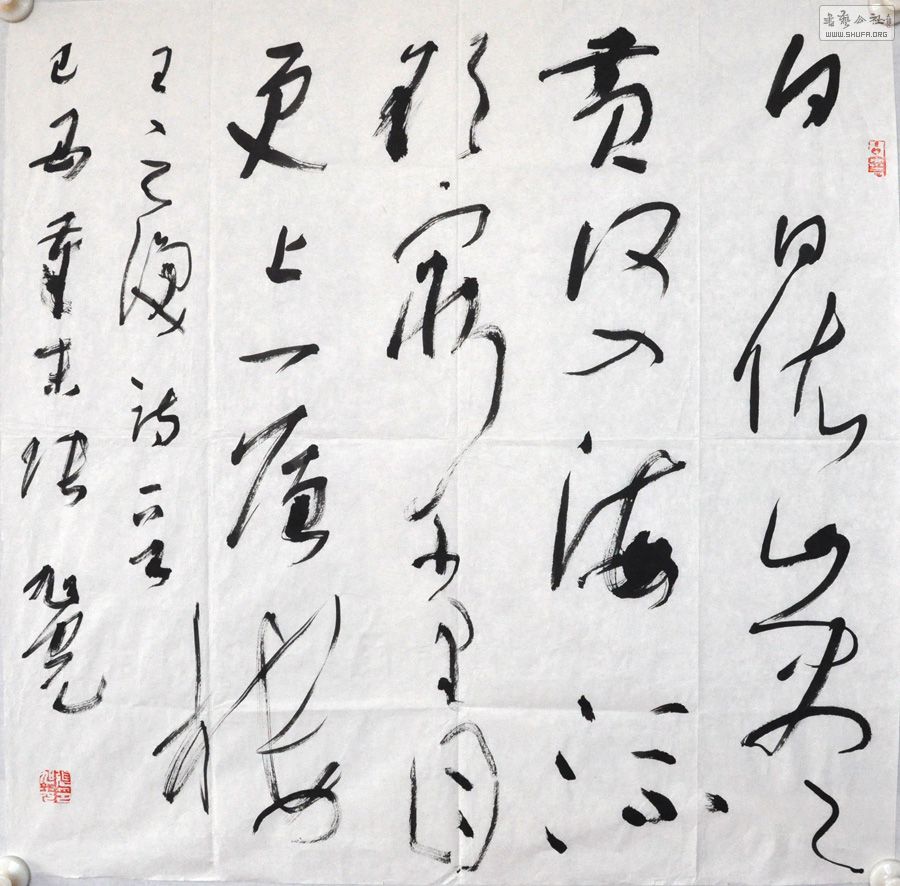 書藝公社
WWW.SHUFA.ORG
白日依山尽
黄河入海流
欲窮千里目
更上一層楼
王之渙诗一首
己丑 末张旭